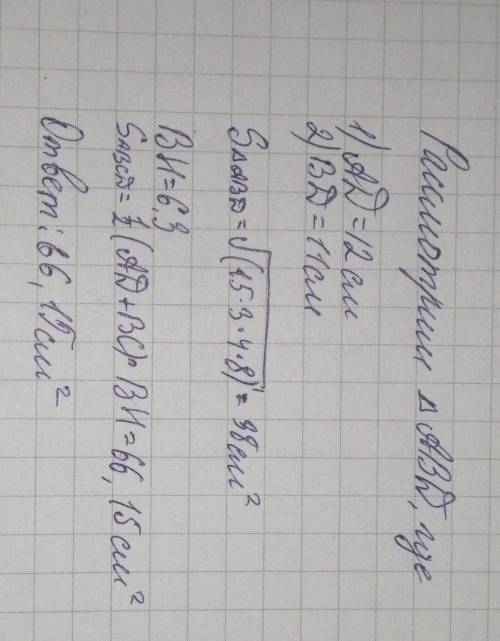 Рассмотрим △ABD, где
1) AD = 12 см
2) BD = 11 см
S△ABD = √(15·3·4·8) = 38 см²
BH = 6,3
SABCD = ½ (AD + BC) · BH = 66,15 см²
Ответ: 66,15 см²